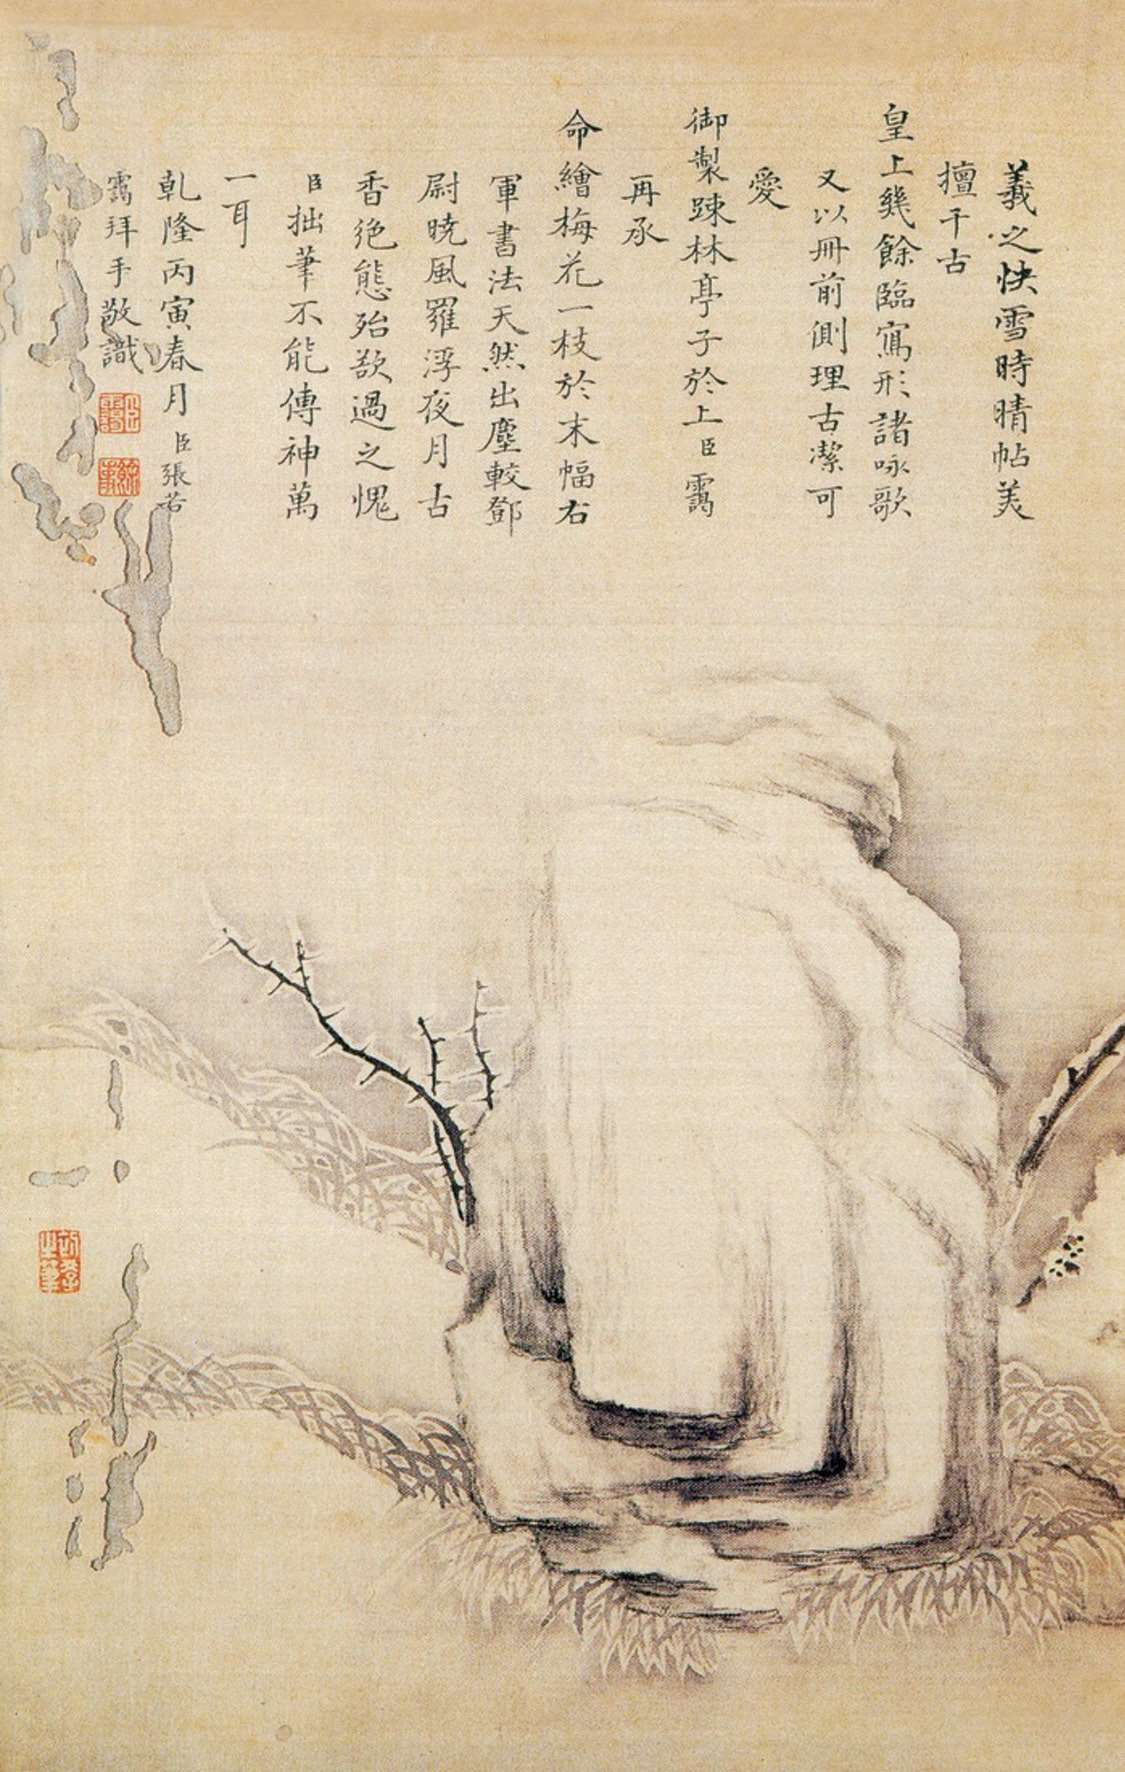 羲之快雪時晴帖美
擅千古
皇上幾餘臨寫形諸咏歌
又以冊前側理古潔可
愛
御製踈林亭子於上臣靄
再承
命繪梅花一枝於末幅右
軍書法天然出塵較鄧
尉曉風羅浮夜月古
香絕態殆欲過之愧
臣拙筆不能傳神萬
一耳
乾隆丙寅春月臣張若
靄拜手敬識